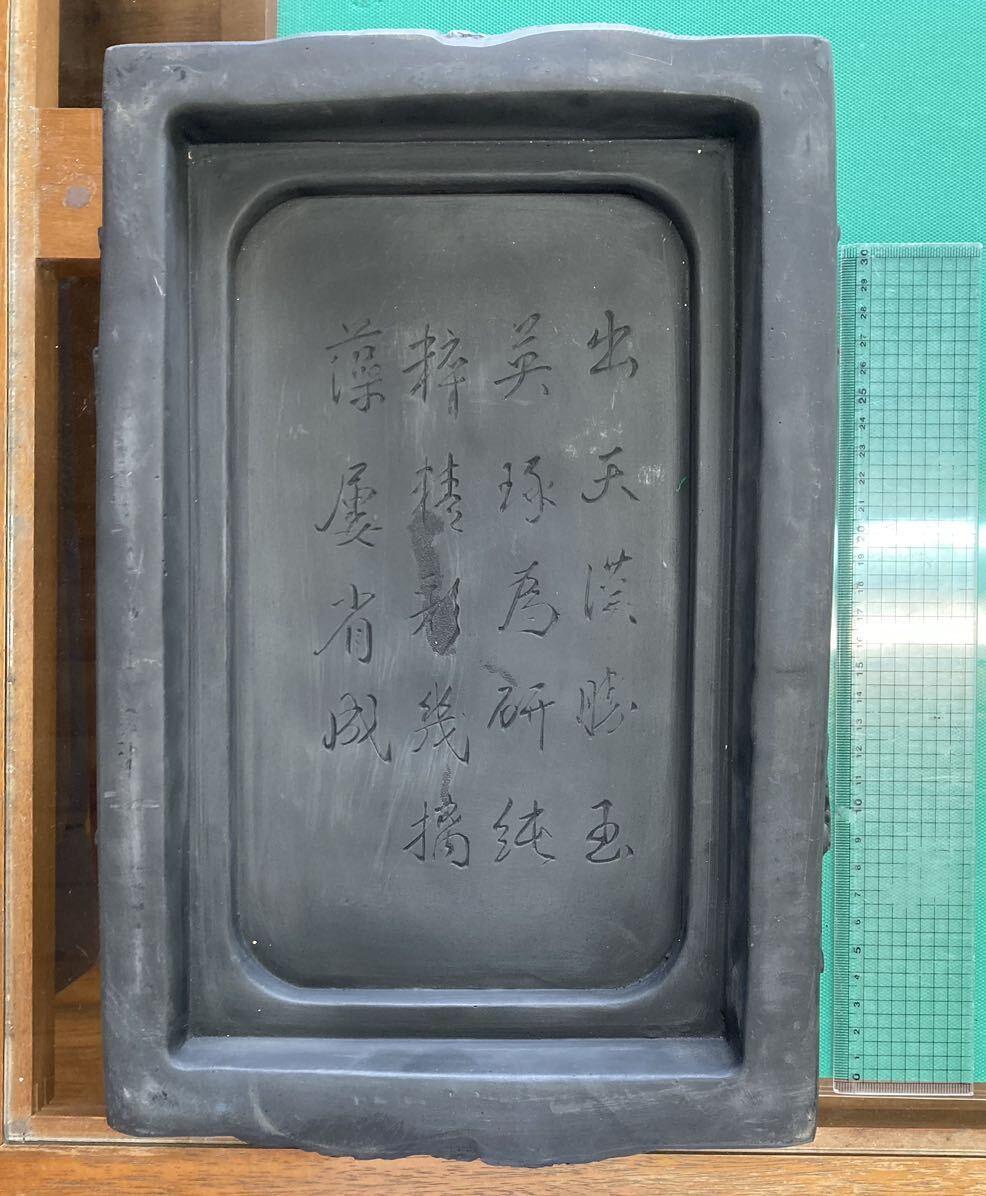 出天漢勝玉
英琢為研純
粹精幾摛
藻屢省成
30 29 28 27 26 25 24 23 22 21 20 19 18 17 16 15 14 13 12 11 10 9 8 7 6 5 4 3 2 1 0